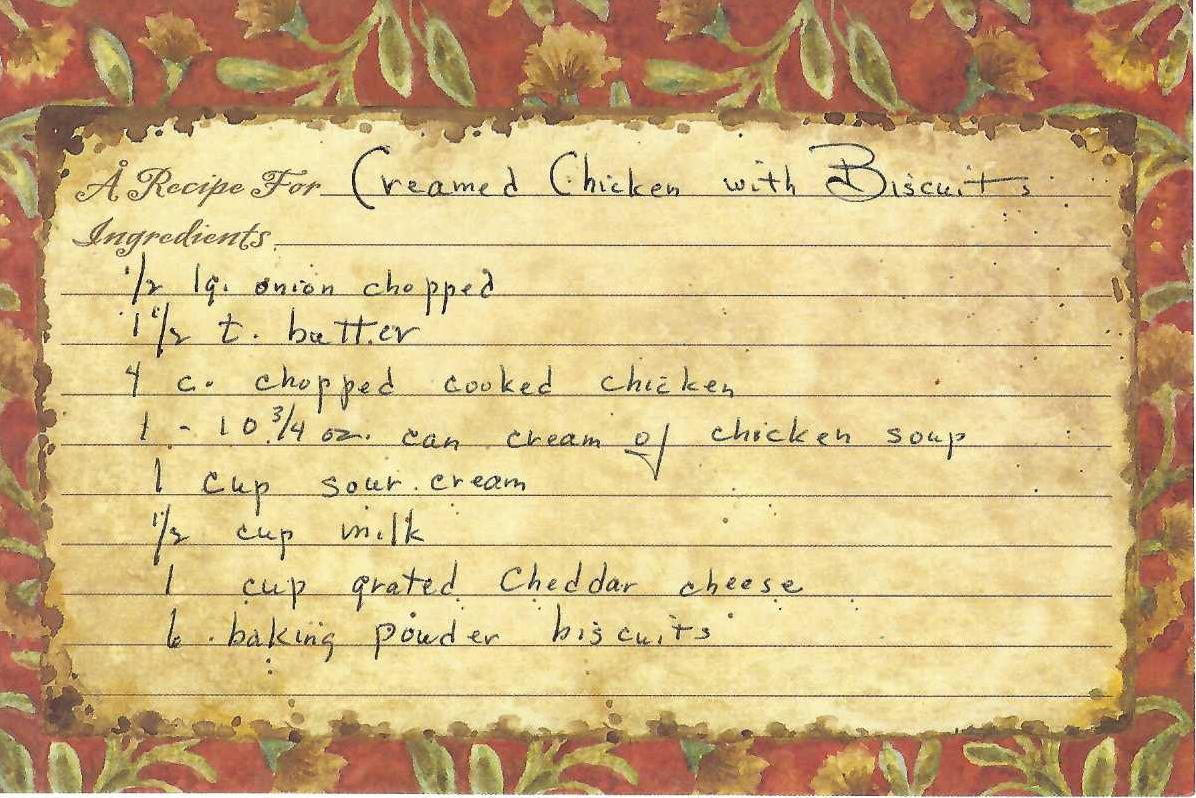 A Recipe For Creamed Chicken with Biscuits
Ingredients
1/2 lg. onion chopped
1 1/2 t. butter
4 c. chopped cooked chicken
1 - 10 3/4 oz. can cream of chicken soup
1 cup sour cream
1/2 cup milk
1 cup grated Cheddar cheese
6 baking powder biscuits